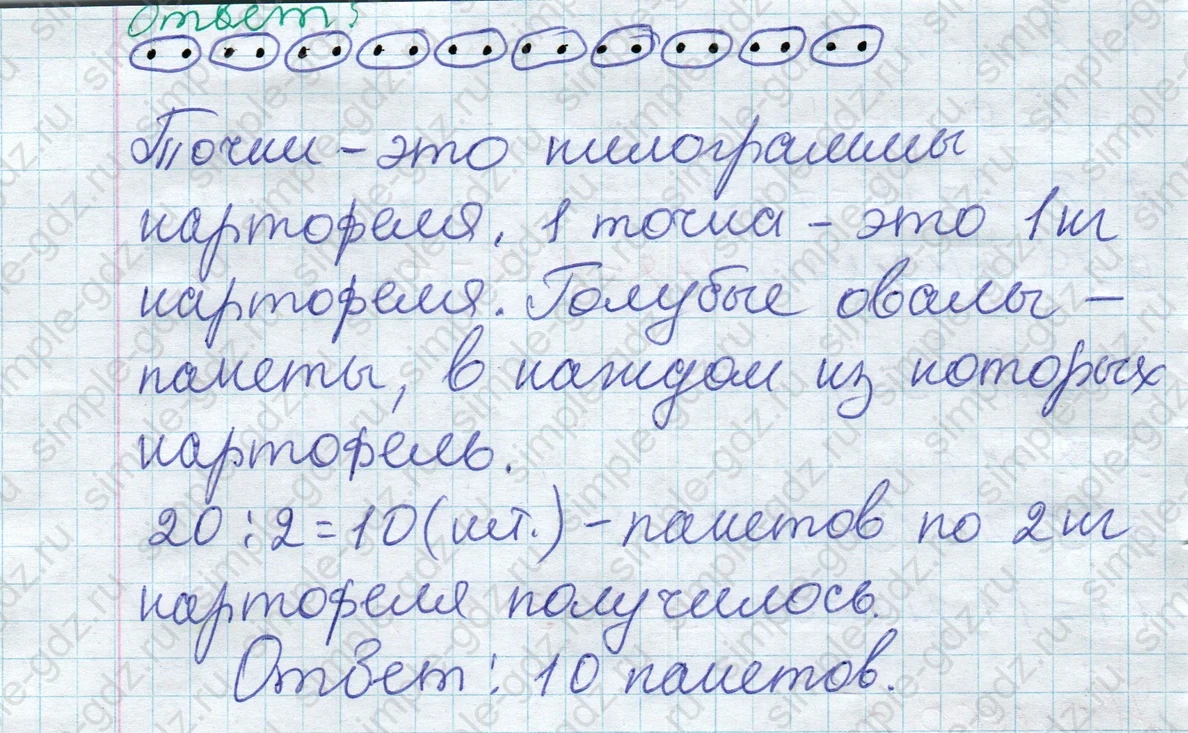 Ответ:
Точки – это килограммы
картофеля. 1 точка – это 1 кг
картофеля. Голубые овалы –
пакеты, в каждом из которых
картофель.
20 : 2 = 10 (шт.) – пакетов по 2 кг
картофеля получилось.
Ответ: 10 пакетов.
simple-gdz.ru